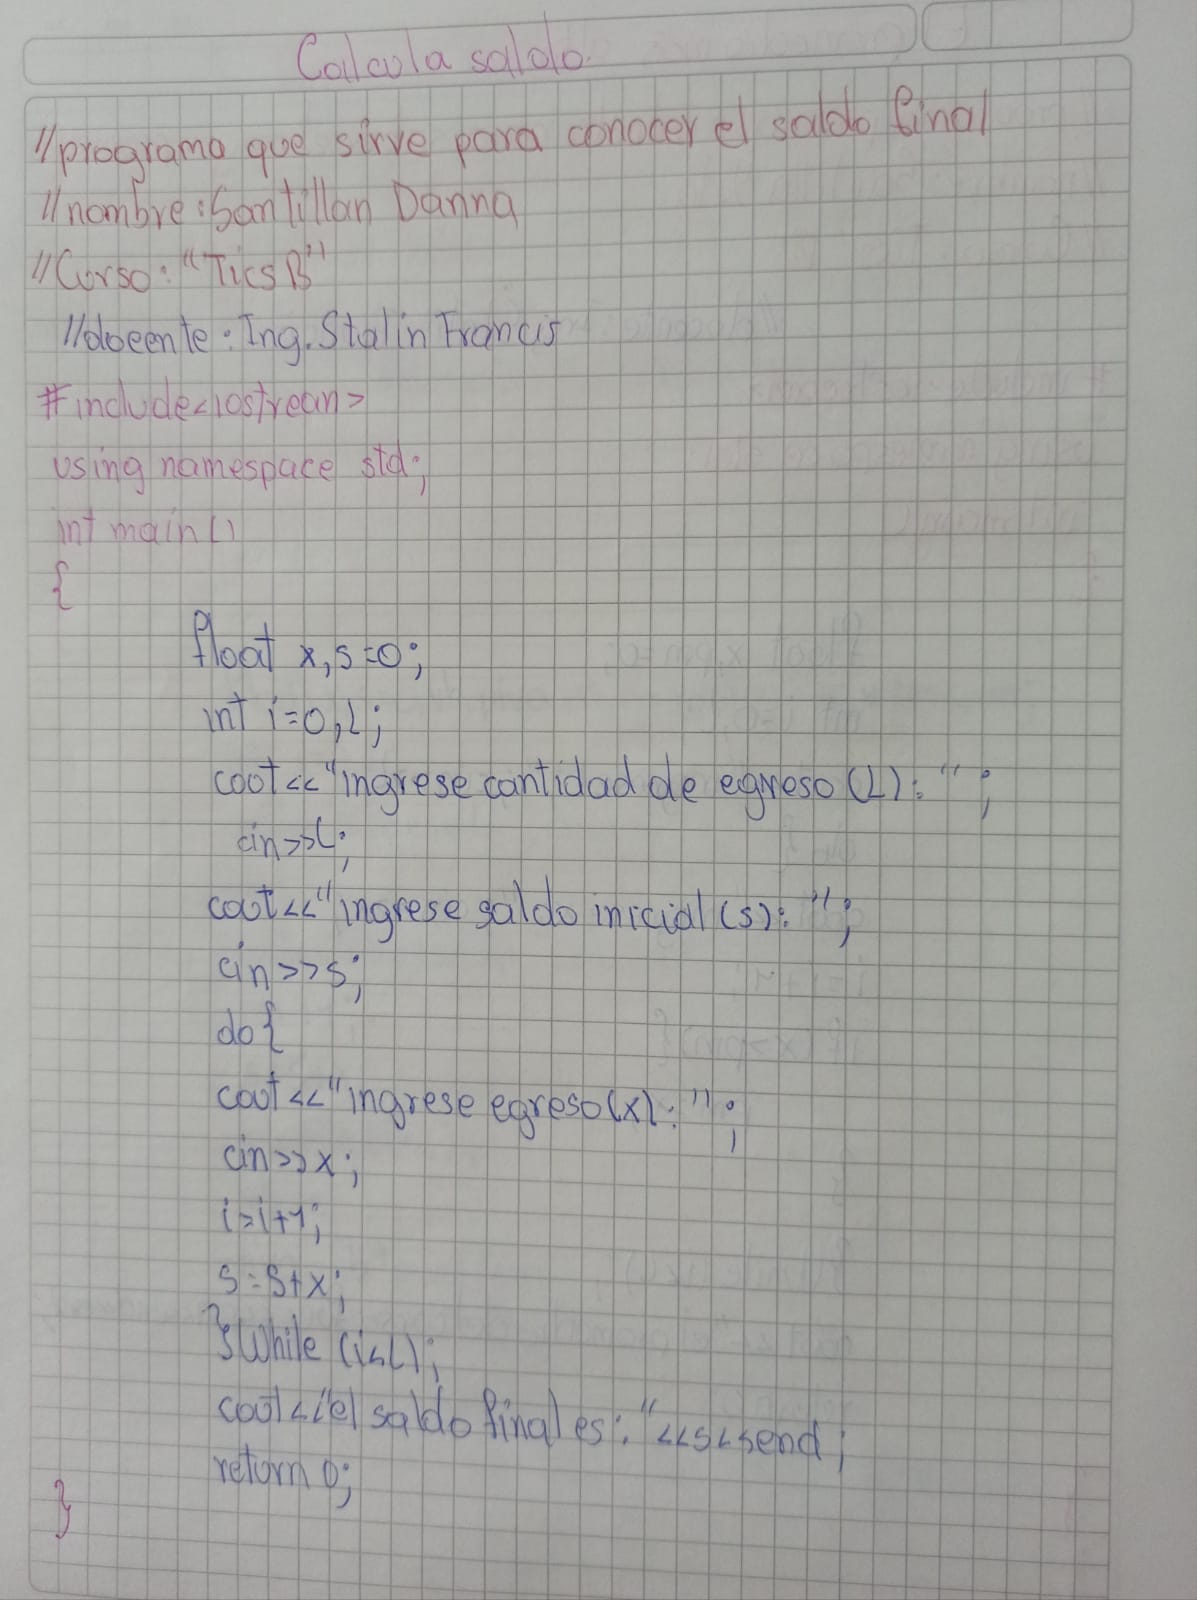 Calcula saldo.
//programa que sirve para conocer el saldo final
//nombre: Santillan Danna
//Curso: "Tics B"
//docente: Ing. Stalin Francis
#include<iostrean>
using namespace std;
int main()
{
float x,s=0;
int i=0,L;
cout<<"ingrese cantidad de egreso (L): ";
cin>>L;
cout<<"ingrese saldo inicial (s): ";
cin>>s;
do{
cout<<"ingrese egreso(x): ";
cin>>x;
i=i+1;
s=s+x;
}while (i<L);
cout<<"el saldo final es: "<<s<<end;
return 0;
}